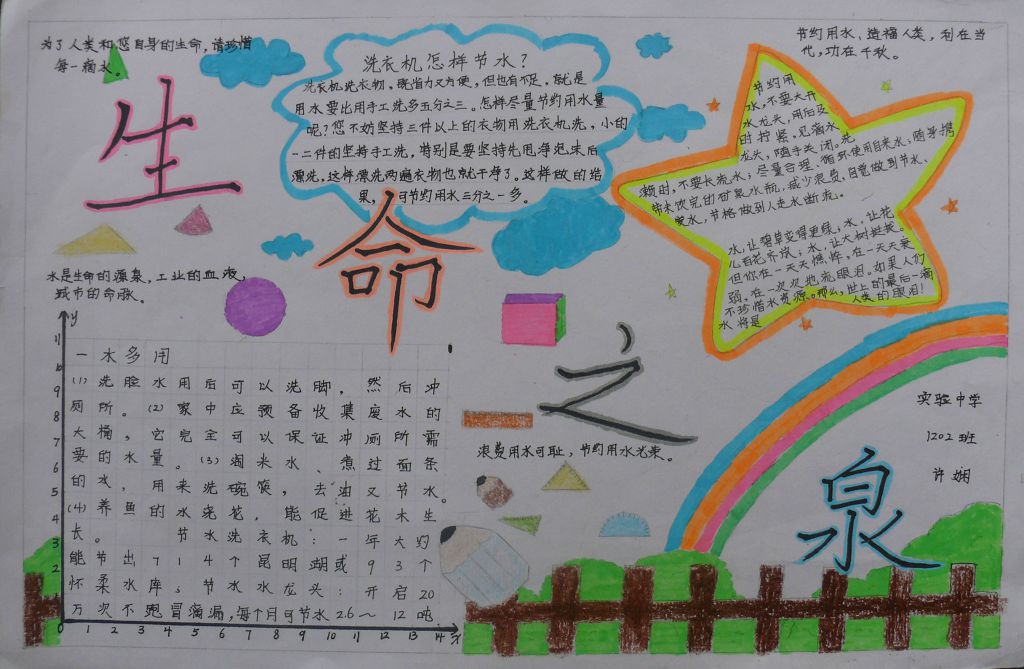 为了人类和您自身的生命，请珍惜
每一滴水。
生
命
之
泉
洗衣机怎样节水？
洗衣机洗衣物，既省力又方便，但也有不足。就是
用水要比用手工洗多五分之三。怎样尽量节约用水量
呢？您不妨坚持三件以上的衣物用洗衣机洗，小的
一二件的坚持手工洗，特别是要坚持先甩净泡沫后
漂洗，这样漂洗两遍衣物也就干净了。这样做的结
果，可节约用水三分之一多。
节约用水、造福人类，利在当
代，功在千秋。
节约用
水，不要大开
水龙头，用后及
时拧紧。见滴水
龙头，随手关闭。洗
濑时，不要长流水；尽量合理、循环使用自来水；随身携
带未饮完的矿泉水瓶，减少浪费，自觉做到节水、
爱水，节格做到人走水断流。
水，让碧草变得更绿，水，让花
儿百花齐放；水，让大树挺拔。
但你在一天天憔悴，在一天天衰
弱，在一次次地流眼泪。如果人们
不珍惜水资源。那么，世上的最后一滴
水将是人类的眼泪！
水是生命的源泉，工业的血液，
城市的命脉。
y
一水多用
(1)洗脸水用后可以洗脚，然后冲
厕所。(2)家中应预备收集废水的
大桶，它完全可以保证冲厕所需
要的水量。(3)淘米水、煮过面条
的水，用来洗碗筷，去油又节水。
(4)养鱼的水浇花，能促进花木生
长。 节水洗衣机：一年大约
能节出714个昆明湖或93个
怀柔水库；节水水龙头：开启20
万次不跑冒滴漏，每个月可节水2.6～12吨
11
10
9
8
7
6
5
4
3
2
0 1 2 3 4 5 6 7 8 9 10 11 12 13 14 x
浪费用水可耻，节约用水光荣。
实验中学
1202班
许娴